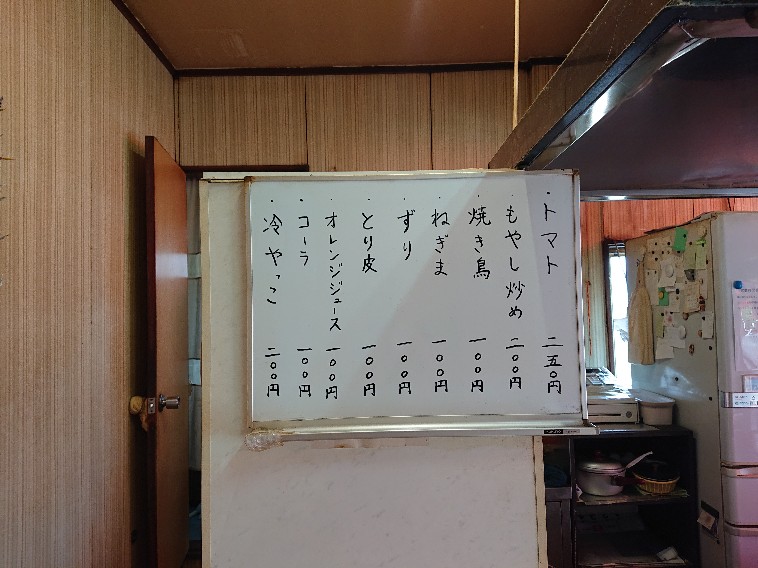 ・トマト 二五〇円
・もやし炒め 二〇〇円
・焼き鳥 一〇〇円
・ねぎま 一〇〇円
・ずり 一〇〇円
・とり皮 一〇〇円
・オレンジジュース 一〇〇円
・コーラ 一〇〇円
・冷やっこ 二〇〇円